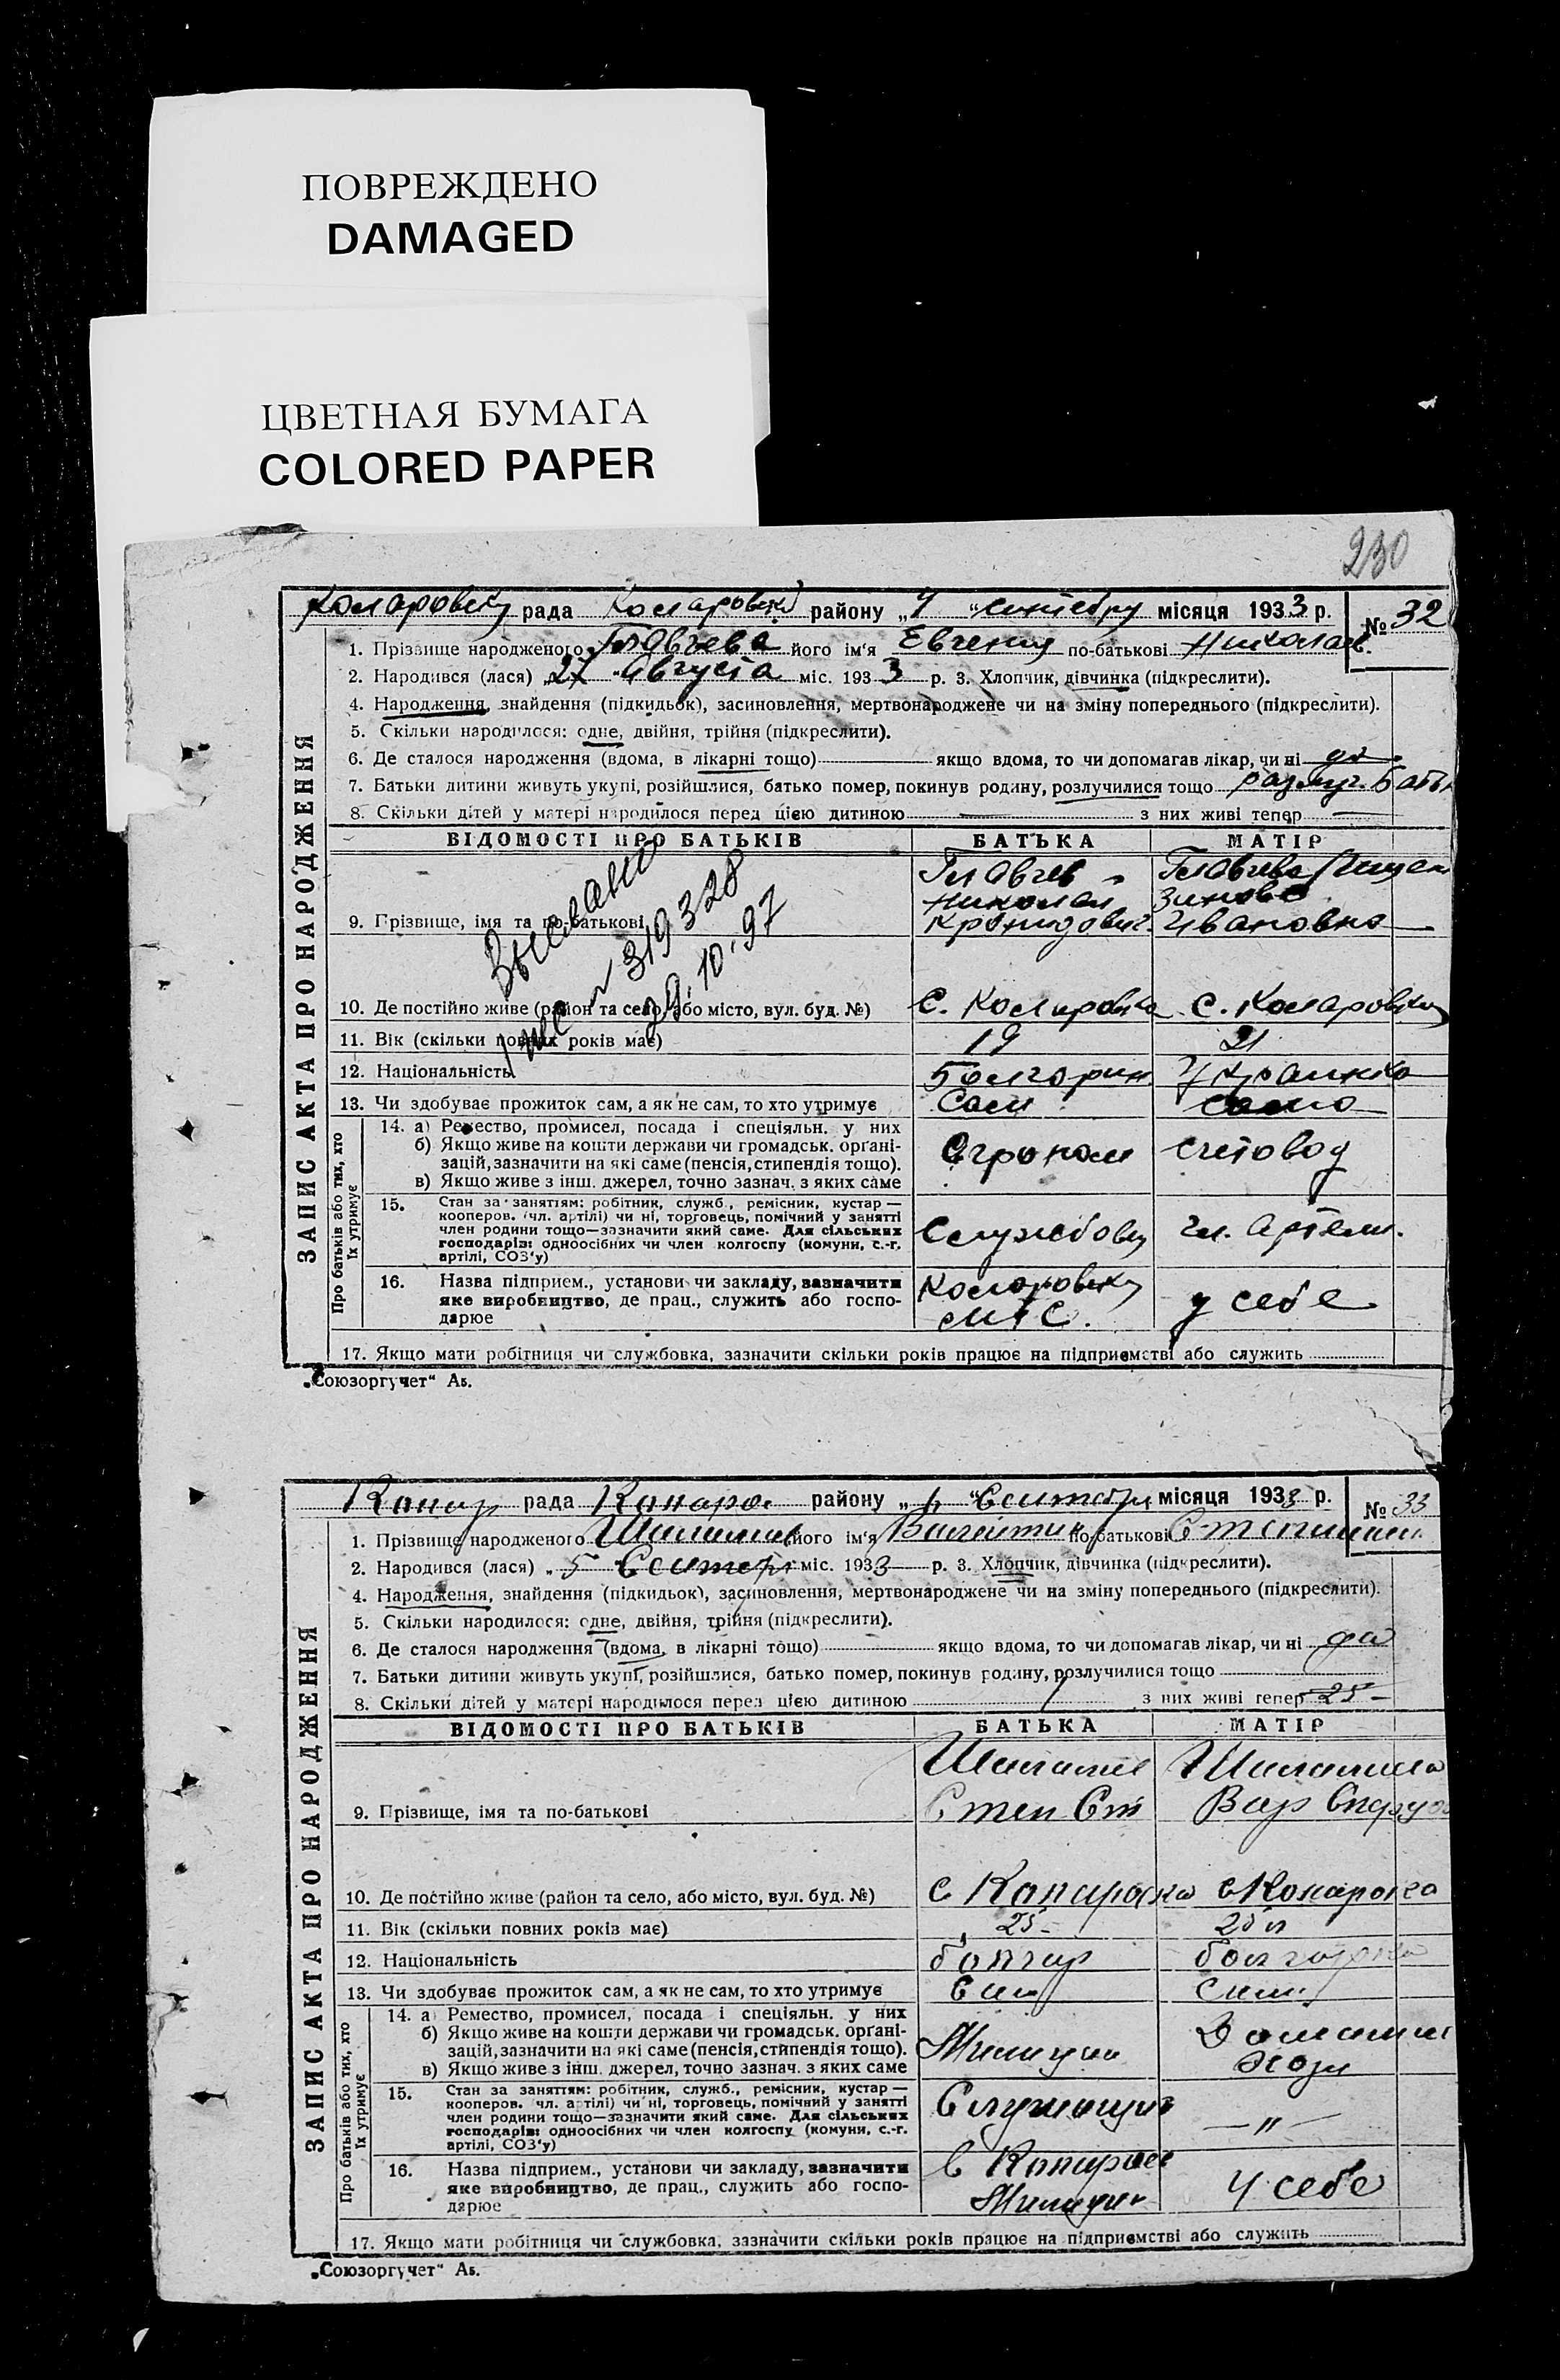 ПОВРЕЖДЕНО
DAMAGED
ЦВЕТНАЯ БУМАГА
COLORED PAPER
230
рада району „ “ місяця 1933 р. № 32
1. Прізвище народженого Главчева його ім‘я Евгения по-батькові
2. Народився (лася) „27 “ Августа міс. 1933 р. 3. Хлопчик, дівчинка (підкреслити).
4. Народження, знайдення (підкидьок), засиновлення, мертвонароджене чи на зміну попереднього (підкреслити).
5. Скільки народилося: одне, двійня, трійня (підкреслити).
6. Де сталося народження (вдома, в лікарні тощо) якщо вдома, то чи допомагав лікар, чи ні
7. Батьки дитини живуть укупі, розійшлися, батько помер, покинув родину, розлучилися тощо
8. Скільки дітей у матері народилося перед цією дитиною — з них живі тепер —
ЗАПИС АКТА ПРО НАРОДЖЕННЯ
ВІДОМОСТІ ПРО БАТЬКІВ БАТЬКА МАТІР
Главчев Главчева
Николай
9. Прізвище, імя та по-батькові Ивановна
№ 319328
29.10.97
10. Де постійно живе (район та село, або місто, вул. буд. №) С. С.
11. Вік (скільки повних років має) 19 21
12. Національність Болгарин Украинка
13. Чи здобуває прожиток сам, а як не сам, то хто утримує Сам Сама
Про батьків або тих, хто їх утримує
14. а) Ремество, промисел, посада і спеціяльн. у них
б) Якщо живе на кошти держави чи громадськ. орґані-
зацій, зазначити на які саме (пенсія, стипендія тощо). Агроном Счетовод
в) Якщо живе з інш. джерел, точно зазнач. з яких саме
15. Стан за заняттям: робітник, служб., ремісник, кустар —
кооперов. (чл. артілі) чи ні, торговець, помічний у занятті
член родини тощо—зазначити який саме. Для сільських
господарів: одноосібних чи член колгоспу (комуни, с.-г. чл. Артели.
артілі, СОЗ‘у)
16. Назва підприєм., установи чи закладу, зазначити
яке виробництво, де прац., служить або госпо- у себе
дарює МТС.
17. Якщо мати робітниця чи службовка, зазначити скільки років працює на підприємстві або служить
„Союзоргучет“ Аз.
рада району „ “ місяця 1933 р. № 33
1. Прізвище народженого його ім‘я Валентин по-батькові
2. Народився (лася) „5 “ міс. 1933 р. 3. Хлопчик, дівчинка (підкреслити).
4. Народження, знайдення (підкидьок), засиновлення, мертвонароджене чи на зміну попереднього (підкреслити).
5. Скільки народилося: одне, двійня, трійня (підкреслити).
6. Де сталося народження (вдома, в лікарні тощо) якщо вдома, то чи допомагав лікар, чи ні да
7. Батьки дитини живуть укупі, розійшлися, батько помер, покинув родину, розлучилися тощо
8. Скільки дітей у матері народилося перед цією дитиною з них живі тепер 25 –
ЗАПИС АКТА ПРО НАРОДЖЕННЯ
ВІДОМОСТІ ПРО БАТЬКІВ БАТЬКА МАТІР
9. Прізвище, імя та по-батькові Степ Ст Вар
10. Де постійно живе (район та село, або місто, вул. буд. №) с с
11. Вік (скільки повних років має) 25 – 25 л
12. Національність болгар болгарка
13. Чи здобуває прожиток сам, а як не сам, то хто утримує Сам
Про батьків або тих, хто їх утримує
14. а) Ремество, промисел, посада і спеціяльн. у них
б) Якщо живе на кошти держави чи громадськ. орґані-
зацій, зазначити на які саме (пенсія, стипендія тощо).
в) Якщо живе з інш. джерел, точно зазнач. з яких саме
15. Стан за заняттям: робітник, служб., ремісник, кустар —
кооперов. (чл. артілі) чи ні, торговець, помічний у занятті
член родини тощо—зазначити який саме. Для сільських — " —
господарів: одноосібних чи член колгоспу (комуни, с.-г.
артілі, СОЗ‘у)
16. Назва підприєм., установи чи закладу, зазначити в
яке виробництво, де прац., служить або госпо- у себе
дарює
17. Якщо мати робітниця чи службовка, зазначити скільки років працює на підприємстві або служить
„Союзоргучет“ Аз.